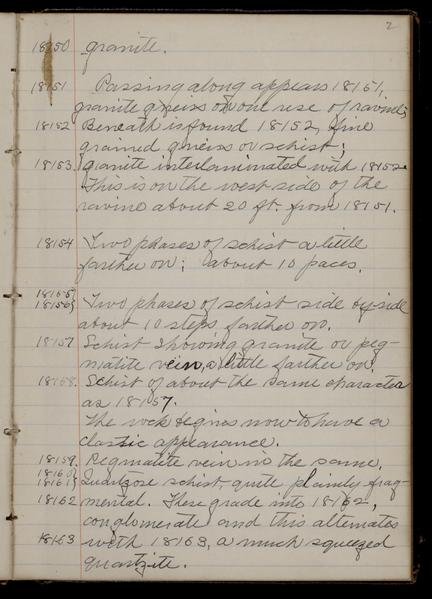 2
18150 granite.
18151 Passing along appears 18151,
granite gneiss on one rise of ravine;
18152 Beneath is found 18152, fine
grained gneiss or schist;
18153 granite interlaminated with 18152.
This is on the west side of the
ravine about 20 ft. from 18151.
18154 Two phases of schist a little
farther on; about 10 paces.
18155
18156} Two phases of schist side by side
about 10 steps farther on.
18157 Schist showing granite or peg-
matite vein, a little farther on.
18158. Schist of about the same character
as 18157.
The rock begins now to have a
clastic appearance.
18159. Pegmatite vein in the same.
18160
18161} Quartzose schist, quite plainly frag-
18162 mental. These grade into 18162,
conglomerate and this alternates
18163 with 18163, a much squeezed
quartzite.